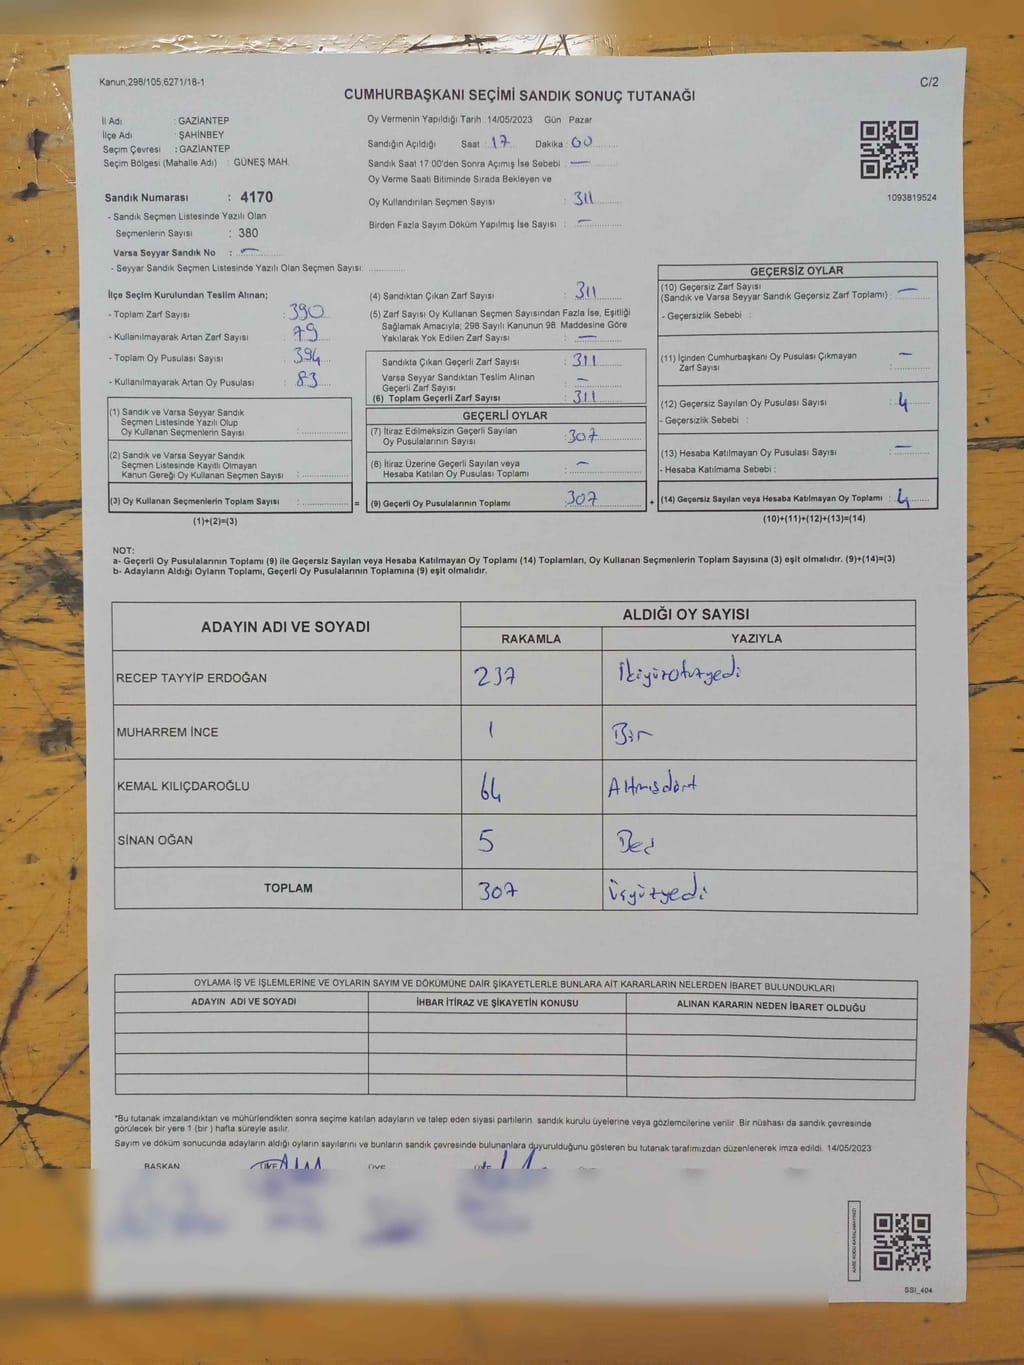 Kanun;298/105,6271/18-1
C/2
CUMHURBAŞKANI SEÇİMİ SANDIK SONUÇ TUTANAĞI
İl Adı : GAZİANTEP
İlçe Adı : ŞAHİNBEY
Seçim Çevresi : GAZİANTEP
Seçim Bölgesi (Mahalle Adı) : GÜNEŞ MAH.
Sandık Numarası : 4170
- Sandık Seçmen Listesinde Yazılı Olan
Seçmenlerin Sayısı : 380
Varsa Seyyar Sandık No : —
- Seyyar Sandık Seçmen Listesinde Yazılı Olan Seçmen Sayısı: ............
Oy Vermenin Yapıldığı Tarih :14/05/2023 Gün Pazar
Sandığın Açıldığı Saat : 17 Dakika : 00
Sandık Saat 17:00'den Sonra Açımış İse Sebebi : —
Oy Verme Saati Bitiminde Sırada Bekleyen ve
Oy Kullandırılan Seçmen Sayısı : 311
Birden Fazla Sayım Döküm Yapılmış İse Sayısı : —
1093819524
İlçe Seçim Kurulundan Teslim Alınan;
- Toplam Zarf Sayısı : 390
- Kullanılmayarak Artan Zarf Sayısı : 79
- Toplam Oy Pusulası Sayısı : 394
- Kullanılmayarak Artan Oy Pusulası : 83
(1) Sandık ve Varsa Seyyar Sandık
Seçmen Listesinde Yazılı Olup
Oy Kullanan Seçmenlerin Sayısı : ............
(2) Sandık ve Varsa Seyyar Sandık
Seçmen Listesinde Kayıtlı Olmayan
Kanun Gereği Oy Kullanan Seçmen Sayısı : ............
(3) Oy Kullanan Seçmenlerin Toplam Sayısı : ............ =
(1)+(2)=(3)
(4) Sandıktan Çıkan Zarf Sayısı : 311
(5) Zarf Sayısı Oy Kullanan Seçmen Sayısından Fazla İse, Eşitliği
Sağlamak Amacıyla; 298 Sayılı Kanunun 98. Maddesine Göre
Yakılarak Yok Edilen Zarf Sayısı : —
Sandıkta Çıkan Geçerli Zarf Sayısı : 311
Varsa Seyyar Sandıktan Teslim Alınan
Geçerli Zarf Sayısı : —
(6) Toplam Geçerli Zarf Sayısı : 311
GEÇERLİ OYLAR
(7) İtiraz Edilmeksizin Geçerli Sayılan
Oy Pusulalarının Sayısı : 307
(8) İtiraz Üzerine Geçerli Sayılan veya
Hesaba Katılan Oy Pusulası Toplamı : —
(9) Geçerli Oy Pusulalarının Toplamı : 307 +
GEÇERSİZ OYLAR
(10) Geçersiz Zarf Sayısı
(Sandık ve Varsa Seyyar Sandık Geçersiz Zarf Toplamı) : —
- Geçersizlik Sebebi :
(11) İçinden Cumhurbaşkanı Oy Pusulası Çıkmayan
Zarf Sayısı : —
(12) Geçersiz Sayılan Oy Pusulası Sayısı : 4
- Geçersizlik Sebebi :
(13) Hesaba Katılmayan Oy Pusulası Sayısı : —
- Hesaba Katılmama Sebebi :
(14) Geçersiz Sayılan veya Hesaba Katılmayan Oy Toplamı : 4
(10)+(11)+(12)+(13)=(14)
NOT:
a- Geçerli Oy Pusulalarının Toplamı (9) ile Geçersiz Sayılan veya Hesaba Katılmayan Oy Toplamı (14) Toplamları, Oy Kullanan Seçmenlerin Toplam Sayısına (3) eşit olmalıdır. (9)+(14)=(3)
b- Adayların Aldığı Oyların Toplamı, Geçerli Oy Pusulalarının Toplamına (9) eşit olmalıdır.
ADAYIN ADI VE SOYADI ALDIĞI OY SAYISI
RAKAMLA YAZIYLA
RECEP TAYYİP ERDOĞAN 237 İkiyüzotuzyedi
MUHARREM İNCE 1 Bir
KEMAL KILIÇDAROĞLU 64 Altmışdört
SİNAN OĞAN 5 Beş
TOPLAM 307 Üçyüzyedi
OYLAMA İŞ VE İŞLEMLERİNE VE OYLARIN SAYIM VE DÖKÜMÜNE DAİR ŞİKAYETLERLE BUNLARA AİT KARARLARIN NELERDEN İBARET BULUNDUKLARI
ADAYIN ADI VE SOYADI İHBAR İTİRAZ VE ŞİKAYETİN KONUSU ALINAN KARARIN NEDEN İBARET OLDUĞU
*Bu tutanak imzalandıktan ve mühürlendikten sonra seçime katılan adayların ve talep eden siyasi partilerin sandık kurulu üyelerine veya gözlemcilerine verilir. Bir nüshası da sandık çevresinde
görülecek bir yere 1 (bir ) hafta süreyle asılır.
Sayım ve döküm sonucunda adayların aldığı oyların sayılarını ve bunların sandık çevresinde bulunanlara duyurulduğunu gösteren bu tutanak tarafımızdan düzenlenerek imza edildi. 14/05/2023
BAŞKAN ÜYE ÜYE ÜYE
SSI_404